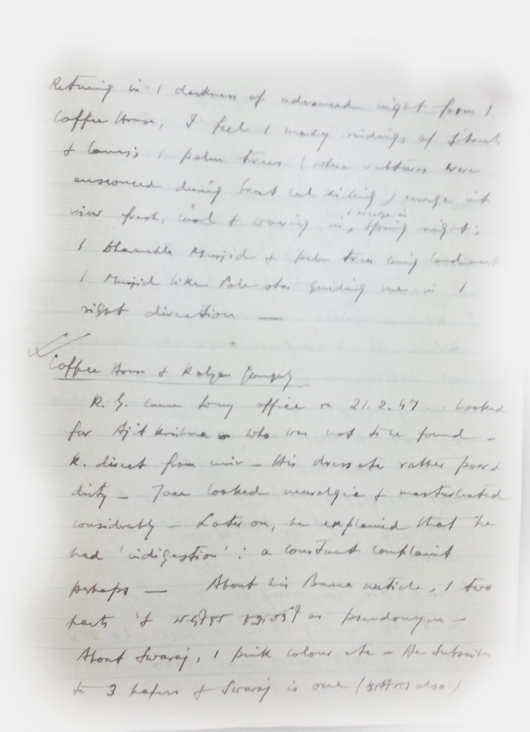 Returning in / darkness of advanced night from /
Coffee House, I feel / many windings of streets
& lanes; / palm trees (where vultures were
ensconced during Great Cal killing) emerge into
view fresh, cool & waving in / spring night:
/ Dharamtala Musjid & palm trees being landmark
/ Musjid like a Pole star guiding me in /
right direction —
Coffee House & Kalyan Ganguly
K. G. came to my office on 21.2.47. Looked
for Ajit Krishna who was not to be found –
K. direct from univ – His dress etc rather poor &
dirty – Face looked neuralgic & masturbated
considerably – Later on, he explained that he
had 'indigestion': a constant complaint
perhaps — About his Burma article, / two
parts & as pseudonym –
About Swaraj, / pink colour etc – He subscribes
to 3 papers & Swaraj is one ( also)